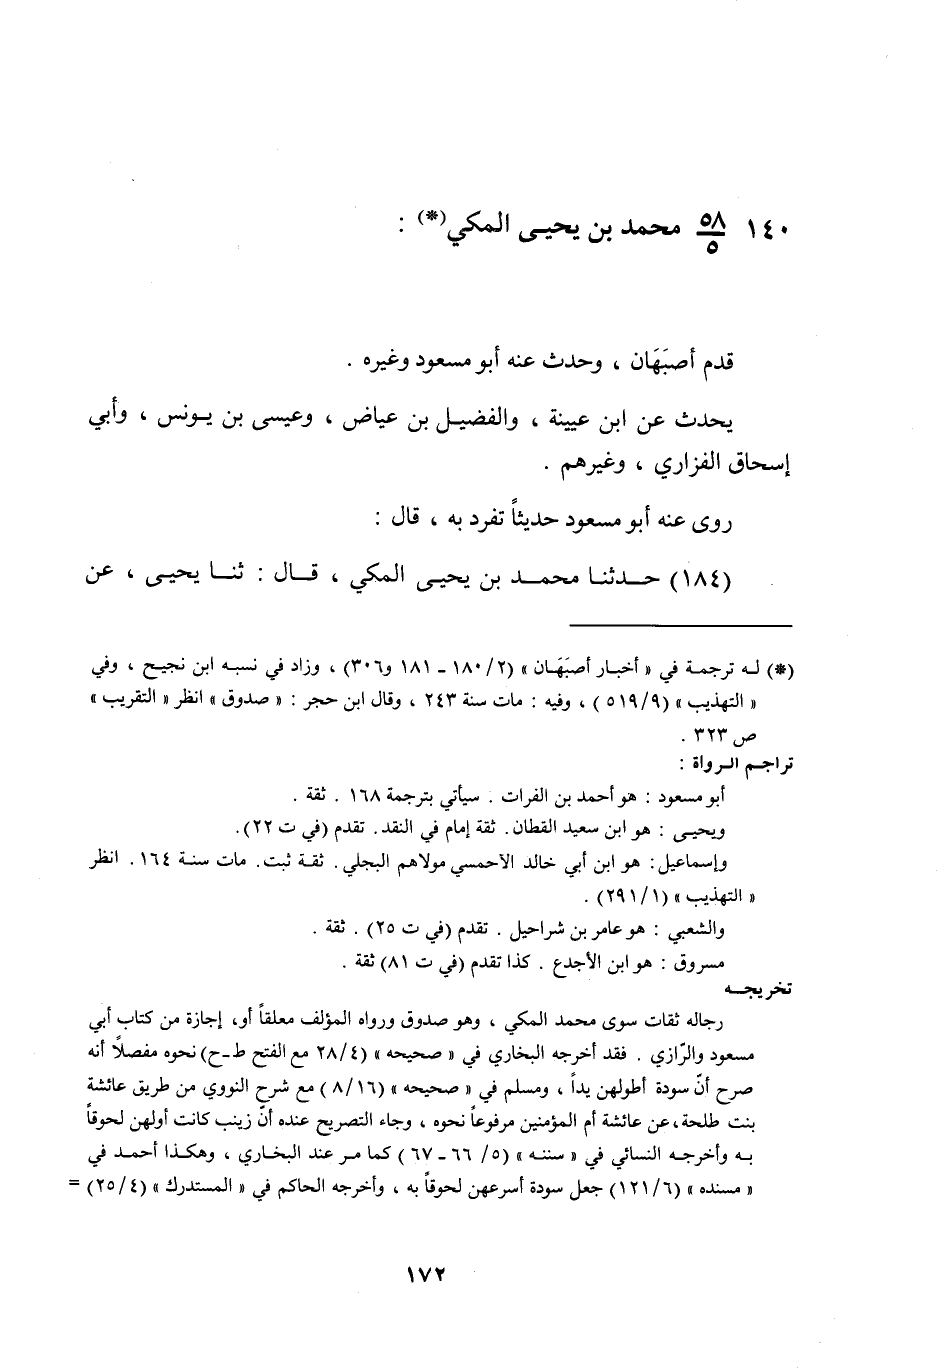 ١٤٠ ٥٨/٥ محمد بن يحيـى المكي(*) :
قدم أصبَهَان ، وحدث عنه أبو مسعود وغيره .
يحدث عن ابن عيينة ، والفضيـل بن عياض ، وعيسى بن يـونس ، وأبي
إسحاق الفزاري ، وغيرهم .
روى عنه أبو مسعود حديثاً تفرد به ، قال :
(١٨٤) حـدثنـا محمـد بن يحيـى المكي ، قـال : ثنـا يحيـى ، عن
(*) لـه ترجمـة في « أخبـار أصبَهَـان » (٢/ ١٨٠ ـ ١٨١ و٣٠٦) ، وزاد في نسبـه ابن نجيـح ، وفي
« التهذيب » (٩/ ٥١٩ ) ، وفيه : مات سنة ٢٤٣ ، وقال ابن حجر : « صدوق » انظر « التقريب »
ص ٣٢٣ .
تراجـم الـرواة :
أبو مسعود : هو أحمد بن الفرات . سيأتي بترجمة ١٦٨ . ثقة .
ويحيـى : هو ابن سعيد القطان. ثقة إمام في النقد. تقدم (في ت ٢٢).
وإسماعيل: هو ابن أبي خالد الأحمسي مولاهم البجلي. ثقـة ثبت. مات سنـة ١٦٤. انظر
« التهذيب » (١/ ٢٩١) .
والشعبي : هو عامر بن شراحيل . تقدم (في ت ٢٥) . ثقة .
مسروق : هو ابن الأجدع . كذا تقدم (في ت ٨١) ثقة .
تخريجـه
رجاله ثقات سوى محمد المكي ، وهو صدوق ورواه المؤلف معلقاً أو، إجازة من كتاب أبي
مسعود والرّازي . فقد أخرجه البخاري في « صحيحه » (٤/ ٢٨ مع الفتح ط-ح) نحوه مفصلاً أنه
صرح أنّ سودة أطولهن يداً ، ومسلم في « صحيحه » (١٦/ ٨ ) مع شرح النووي من طريق عائشة
بنت طلحة، عن عائشة أم المؤمنين مرفوعاً نحوه ، وجاء التصريح عنده أنّ زينب كانت أولهن لحوقاً
بـه وأخرجـه النسائي في « سننـه » (٥/ ٦٦ ـ ٦٧ ) كما مـر عند البخـاري ، وهكـذا أحمـد في
« مسنده » (٦/ ١٢١) جعل سودة أسرعهن لحوقاً به ، وأخرجه الحاكم في « المستدرك » (٤/ ٢٥) =
١٧٢